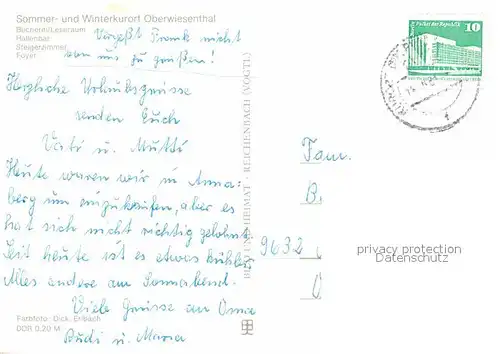 Sommer- und Winterkurort Oberwiesenthal
Bücherei/Leseraum
Hallenbar
Steigerzimmer
Foyer
Vergeßt Frank nicht
von uns zu grüßen!
Herzliche Urlaubsgrüsse
senden Euch
Vati u. Mutti
Heute waren wir in Anna-
berg um einzukaufen, aber es
hat sich nicht richtig gelohnt.
Seit heute ist es etwas kühler.
Alles andere am Sonnabend.
Viele Grüsse an Oma
Rudi u.
Farbfoto: Dick, Erlbach
DDR 0,20 M
BILD UND HEIMAT · REICHENBACH (VOGTL)
Palast der Republik
10
Fam.
B.
9632
O
privacy protection
Datenschutz